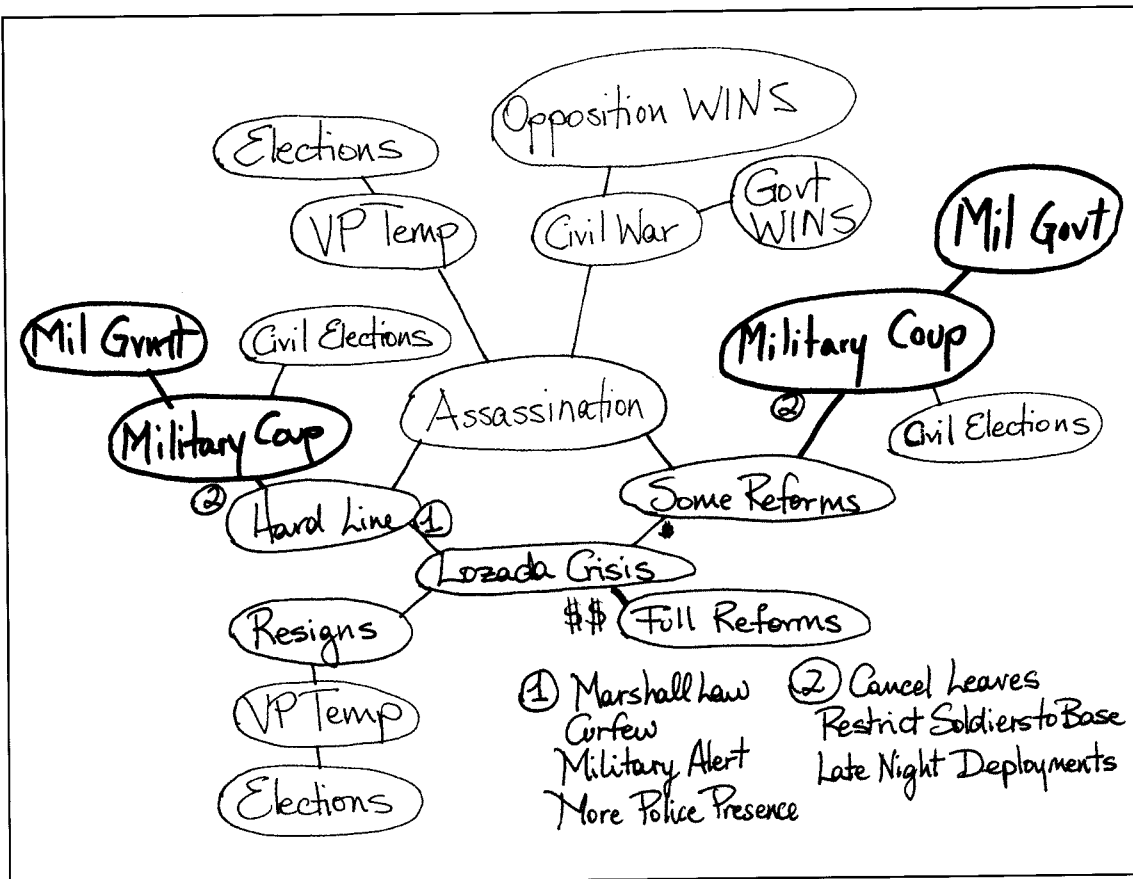 Opposition WINS
Elections
VP Temp
Civil War
Govt
WINS
Mil Govt
Mil Gvmt
Civil Elections
Military Coup
Military Coup
②
Assassination
Civil Elections
②
Hard Line
①
Some Reforms
$
Lozada Crisis
Resigns
$$
Full Reforms
VP Temp
Elections
① Marshall Law
Curfew
Military Alert
More Police Presence
② Cancel Leaves
Restrict Soldiers to Base
Late Night Deployments